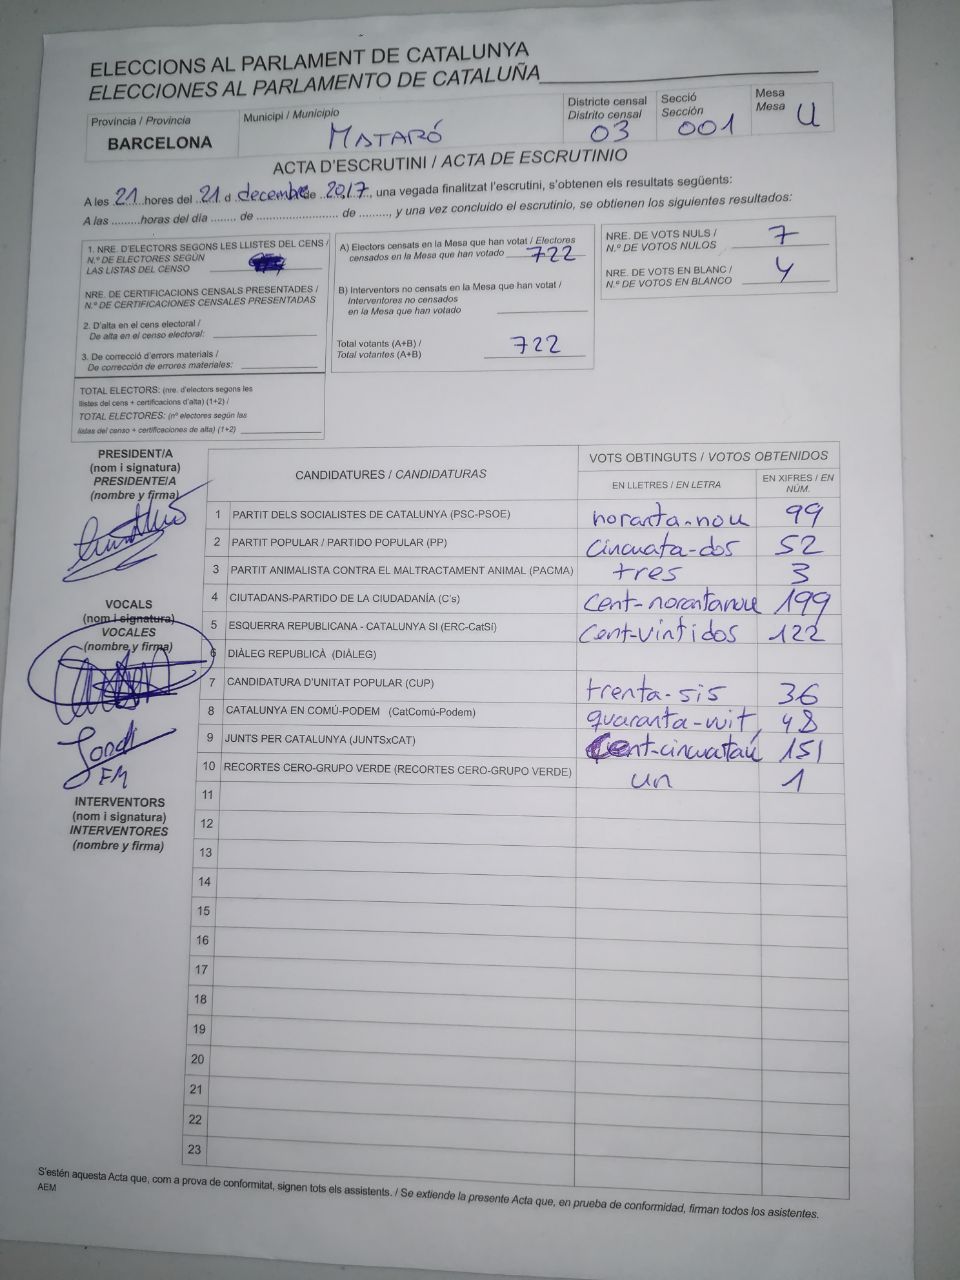 ELECCIONS AL PARLAMENT DE CATALUNYA
ELECCIONES AL PARLAMENTO DE CATALUÑA
Província / Provincia
BARCELONA
Municipi / Municipio
MATARÓ
Districte censal
Distrito censal
03
Secció
Sección
001
Mesa
Mesa
U
ACTA D'ESCRUTINI / ACTA DE ESCRUTINIO
A les 21 hores del 21 d decembre de 2017, una vegada finalitzat l'escrutini, s'obtenen els resultats següents:
A las .........horas del día ........ de ......................... de .........., y una vez concluido el escrutinio, se obtienen los siguientes resultados:
1. NRE. D'ELECTORS SEGONS LES LLISTES DEL CENS /
N.º DE ELECTORES SEGÚN
LAS LISTAS DEL CENSO
NRE. DE CERTIFICACIONS CENSALS PRESENTADES /
N.º DE CERTIFICACIONES CENSALES PRESENTADAS
2. D'alta en el cens electoral /
De alta en el censo electoral:
3. De correcció d'errors materials /
De corrección de errores materiales:
TOTAL ELECTORS: (nre. d'electors segons les
llistes del cens + certificacions d'alta) (1+2) /
TOTAL ELECTORES: (nº electores según las
listas del censo + certificaciones de alta) (1+2)
A) Electors censats en la Mesa que han votat / Electores
censados en la Mesa que han votado 722
B) Interventors no censats en la Mesa que han votat /
Interventores no censados
en la Mesa que han votado
Total votants (A+B) /
Total votantes (A+B) 722
NRE. DE VOTS NULS /
N.º DE VOTOS NULOS 7
NRE. DE VOTS EN BLANC /
N.º DE VOTOS EN BLANCO 4
PRESIDENT/A
(nom i signatura)
PRESIDENTE/A
(nombre y firma)
VOCALS
(nom i signatura)
VOCALES
(nombre y firma)
Jordi
FM
INTERVENTORS
(nom i signatura)
INTERVENTORES
(nombre y firma)
CANDIDATURES / CANDIDATURAS
VOTS OBTINGUTS / VOTOS OBTENIDOS
EN LLETRES / EN LETRA
EN XIFRES / EN NÚM.
1 PARTIT DELS SOCIALISTES DE CATALUNYA (PSC-PSOE) noranta-nou 99
2 PARTIT POPULAR / PARTIDO POPULAR (PP) cincuata-dos 52
3 PARTIT ANIMALISTA CONTRA EL MALTRACTAMENT ANIMAL (PACMA) tres 3
4 CIUTADANS-PARTIDO DE LA CIUDADANÍA (C's) Cent-norantanou 199
5 ESQUERRA REPUBLICANA - CATALUNYA SI (ERC-CatSí) Cent-vintidos 122
6 DIÀLEG REPUBLICÀ (DIÀLEG)
7 CANDIDATURA D'UNITAT POPULAR (CUP) trenta-sis 36
8 CATALUNYA EN COMÚ-PODEM (CatComú-Podem) quaranta-vuit 48
9 JUNTS PER CATALUNYA (JUNTSxCAT) Cent-cincuataú 151
10 RECORTES CERO-GRUPO VERDE (RECORTES CERO-GRUPO VERDE) un 1
11
12
13
14
15
16
17
18
19
20
21
22
23
S'estén aquesta Acta que, com a prova de conformitat, signen tots els assistents. / Se extiende la presente Acta que, en prueba de conformidad, firman todos los asistentes.
AEM